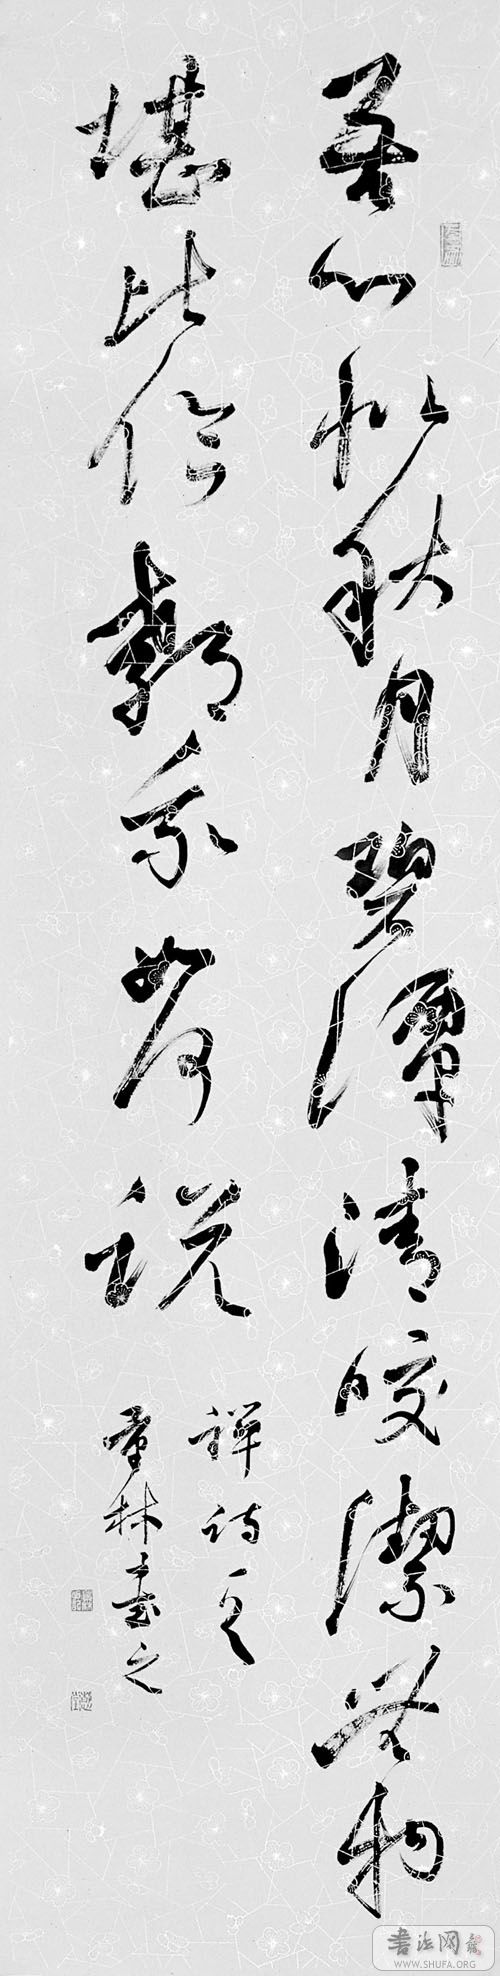 吾心似秋月碧潭清皎潔無物
堪比倫教我如何說
禪詩一首
林書之
書法网
WWW.SHUFA.ORG